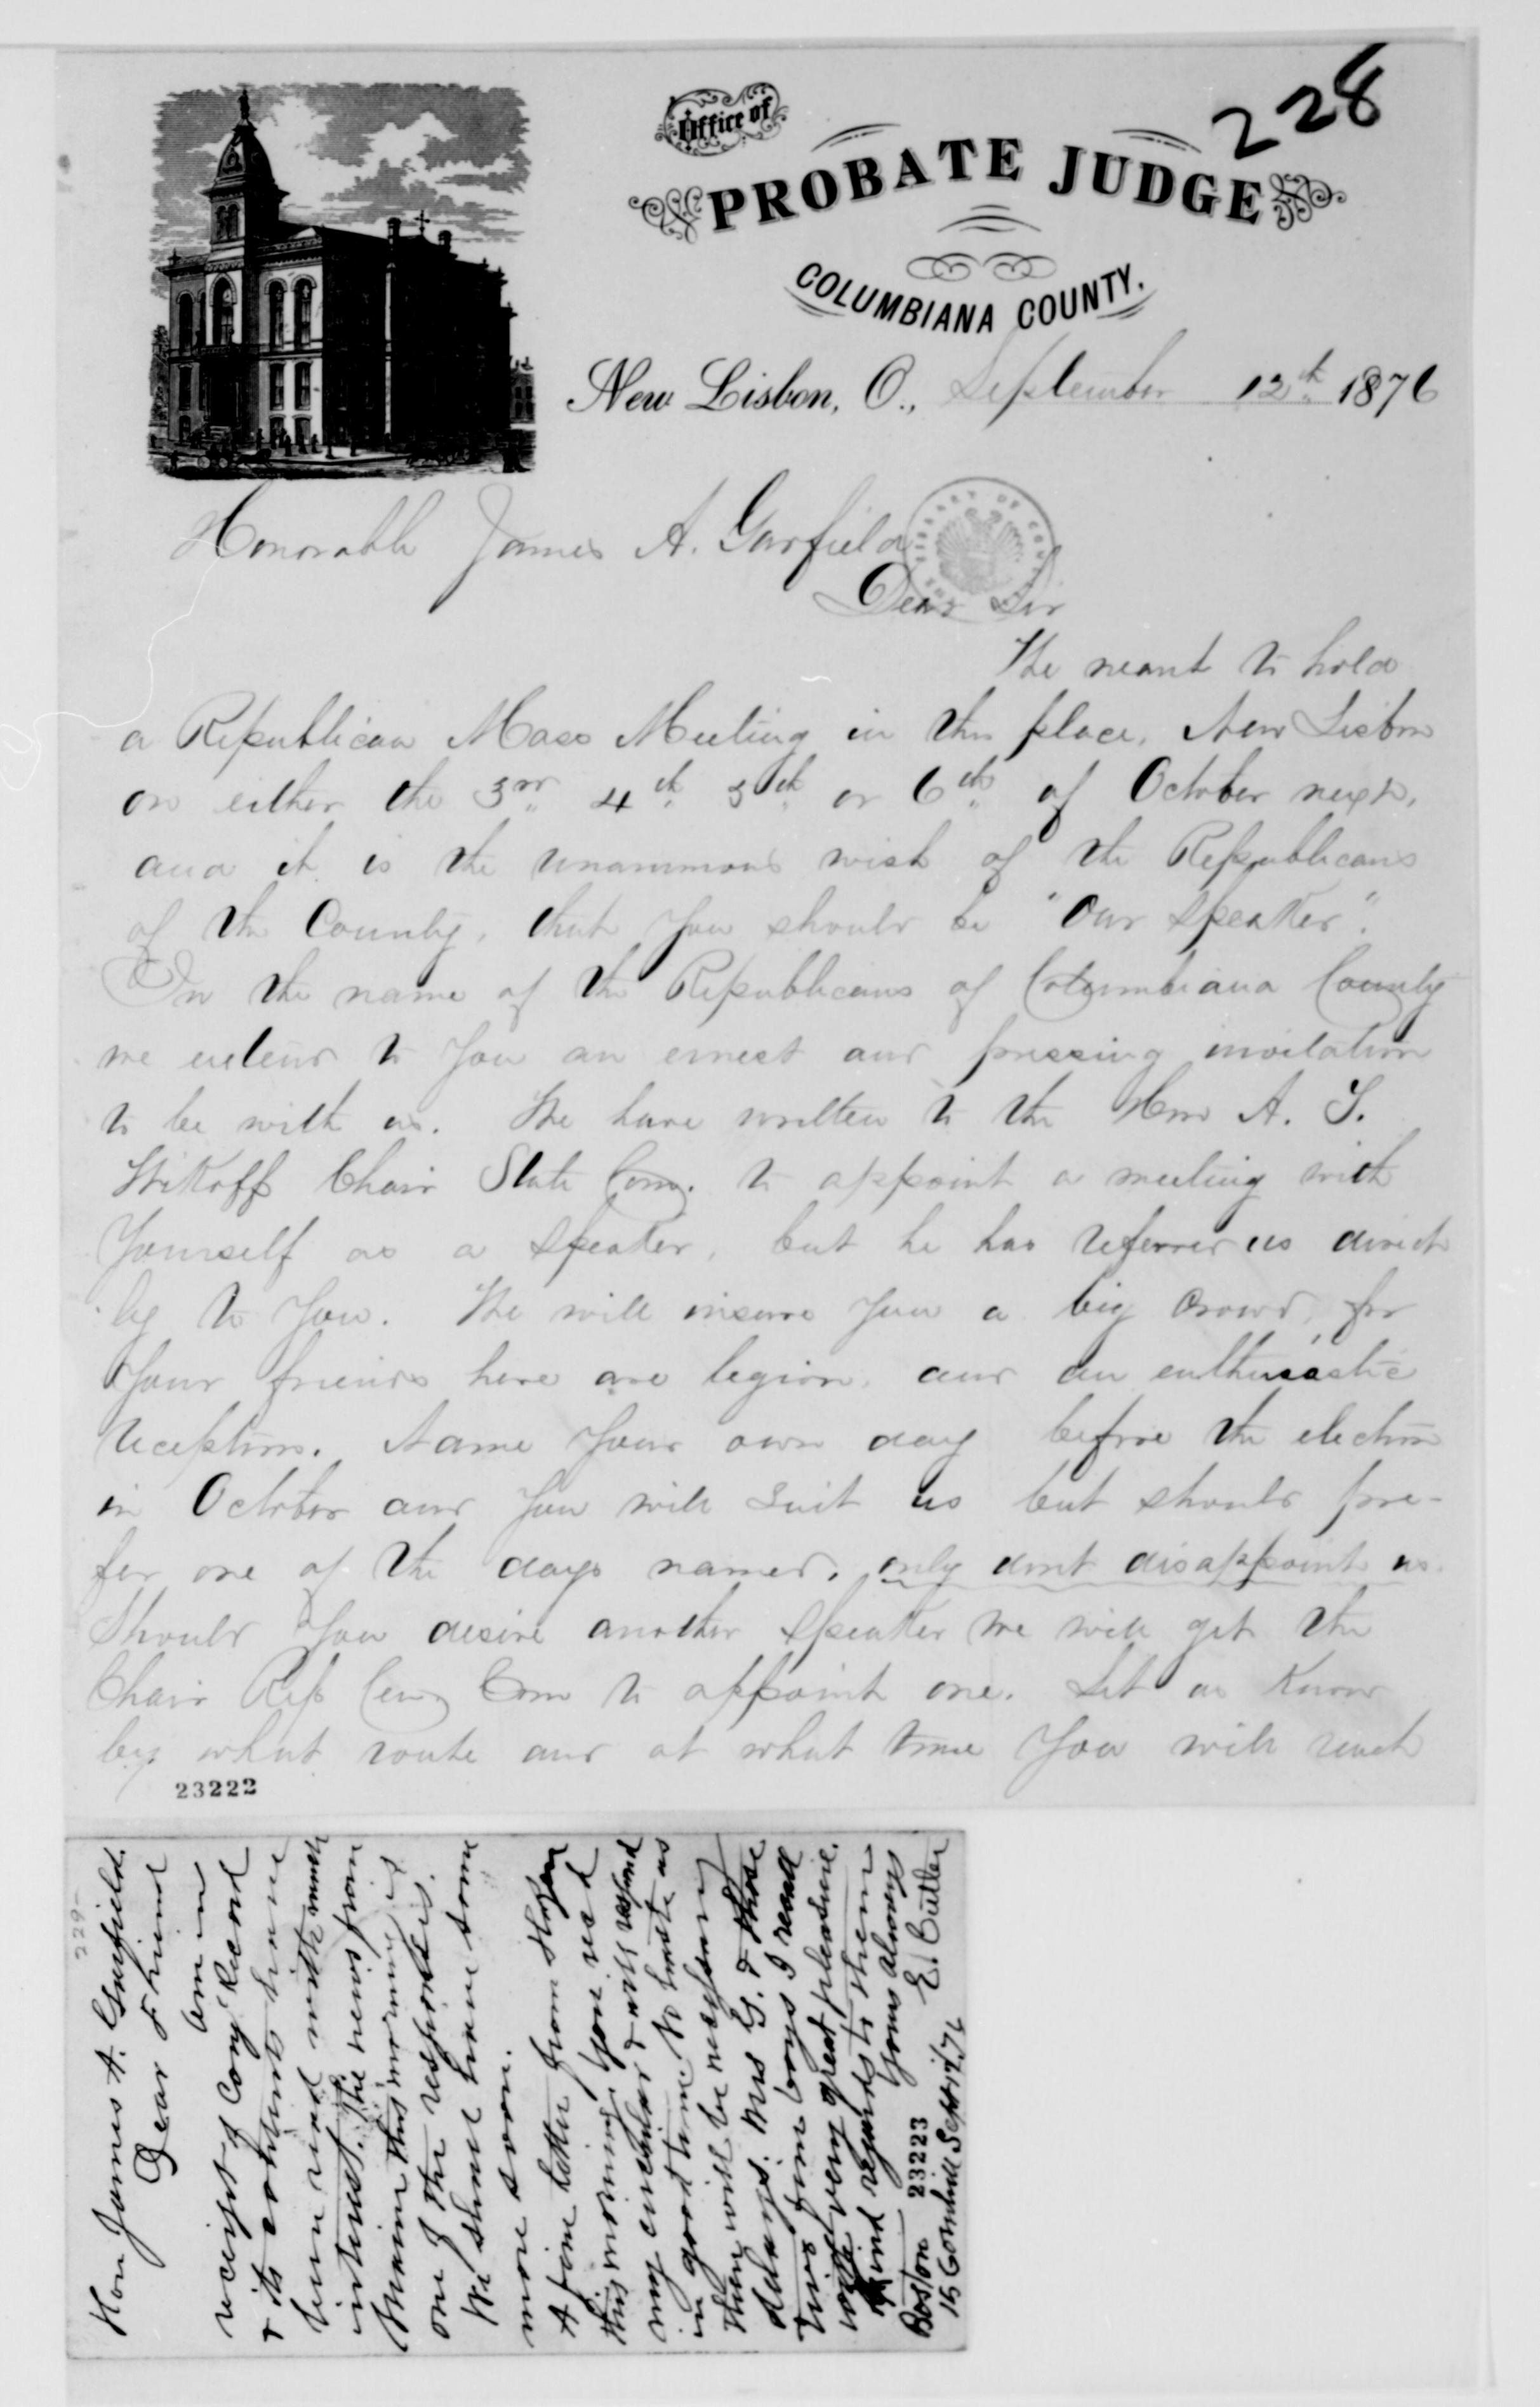 228
Office of
PROBATE JUDGE
COLUMBIANA COUNTY.
New Lisbon, O., September 12th 1876
Honorable James A. Garfield
Dear Sir
We want to hold
a Republican Mass Meeting in this place, New Lisbon
on either the 3rd 4th 5th or 6th of October next,
and it is the unanimous wish of the Republicans
of the County, that you should be "Our Speaker".
In the name of the Republicans of Columbiana County
we extend to you an ernest and pressing invitation
to be with us. We have written to the Hon A. T.
Wikoff Chair State Com. to appoint a meeting with
Yourself as a Speaker, but he has referred us direct
ly to You. We will insure you a big crowd, for
Your friends here are legion, and an enthusastic
reception. Name your own day before the election
in October and you will suit us but should pre-
fer one of the days named, only dont disappoint us.
Should You desire another Speaker we will get the
Chair Rep Cen Com to appoint one. Let us Know
by what route and at what time You will reach
23222
229
Hon James A. Garfield.
Dear Friend
am in
receipt of Cong Record
& its contents have
been read with much
interest. The news from
Maine this morning is
one of the responses.
We shall have some
more soon.
A fine letter from
this morning. You recd
my circular & will respond
in good time. No haste as
there will be necessary
delays. Mrs G. & those
two fine boys I recall
with very great pleasure.
Kind regards to them
Yours always
E. Butler
Boston
23223
15 Cornhill Sept 12/76